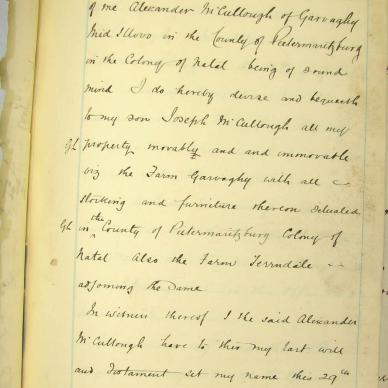 of me Alexander McCullough of Garvaghy
Mid Illovo in the County of Pietermaritzburg
in the Colony of Natal being of sound
mind I do hereby devise and bequeath
to my son Joseph McCullough all my
property movably and and immovable
viz the Farm Garvaghy with all
stocking and furniture thereon situated
in the County of Pietermaritzburg Colony of
Natal Also the Farm Ferndale
adjoining the Same
In witness thereof I the said Alexander
McCullough have to this my last will
and Testament set my name this 29th